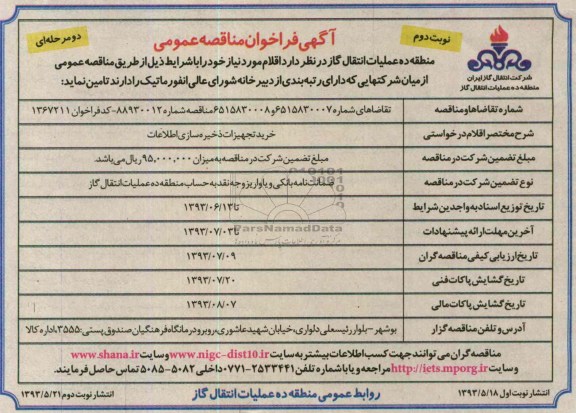 آگهی فراخوان مناقصه عمومی
نوبت دوم
دو مرحله‌ای
شرکت انتقال گاز ایران
منطقه ده عملیات انتقال گاز
منطقه ده عملیات انتقال گاز در نظر دارد اقلام مورد نیاز خود را با شرایط ذیل از طریق مناقصه عمومی
از میان شرکتهایی که دارای رتبه‌بندی از دبیرخانه شورای عالی انفورماتیک را دارند تامین نماید:
شماره تقاضاها و مناقصه تقاضاهای شماره ۶۵۱۵۸۳۰۰۰۷ و ۶۵۱۵۸۳۰۰۰۸ مناقصه شماره ۸۸۹۳۰۰۱۲-کد فراخوان ۱۳۶۷۲۱۱
شرح مختصر اقلام درخواستی خرید تجهیزات ذخیره سازی اطلاعات
مبلغ تضمین شرکت در مناقصه مبلغ تضمین شرکت در مناقصه به میزان ۹۵,۰۰۰,۰۰۰ ریال می‌باشد.
نوع تضمین شرکت در مناقصه ضمانت نامه بانکی و یا واریز وجه نقد به حساب منطقه ده عملیات انتقال گاز
تاریخ توزیع اسناد به واجدین شرایط تا ۱۳۹۳/۰۶/۱۳
آخرین مهلت ارائه پیشنهادات تا ۱۳۹۳/۰۷/۰۳
تاریخ ارزیابی کیفی مناقصه گران ۱۳۹۳/۰۷/۰۹
تاریخ گشایش پاکات فنی ۱۳۹۳/۰۷/۲۰
تاریخ گشایش پاکات مالی ۱۳۹۳/۰۸/۰۷
آدرس و تلفن مناقصه گزار بوشهر-بلوار رئیسعلی دلواری، خیابان شهید عاشوری، روبرو درمانگاه فرهنگیان صندوق پستی: ۳۵۵۵، اداره کالا
مناقصه گران می‌توانند جهت کسب اطلاعات بیشتر به سایت www.nigc-dist10.ir و سایت www.shana.ir
و سایت http://iets.mporg.ir مراجعه و یا با شماره تلفن ۲۵۳۳۴۴۱-۰۷۷۱ داخلی ۵۰۸۲-۵۰۸۵ تماس حاصل فرمایند.
انتشار نوبت اول ۱۳۹۳/۵/۱۸
روابط عمومی منطقه ده عملیات انتقال گاز
انتشار نوبت دوم ۱۳۹۳/۵/۲۱
ParsNamadData